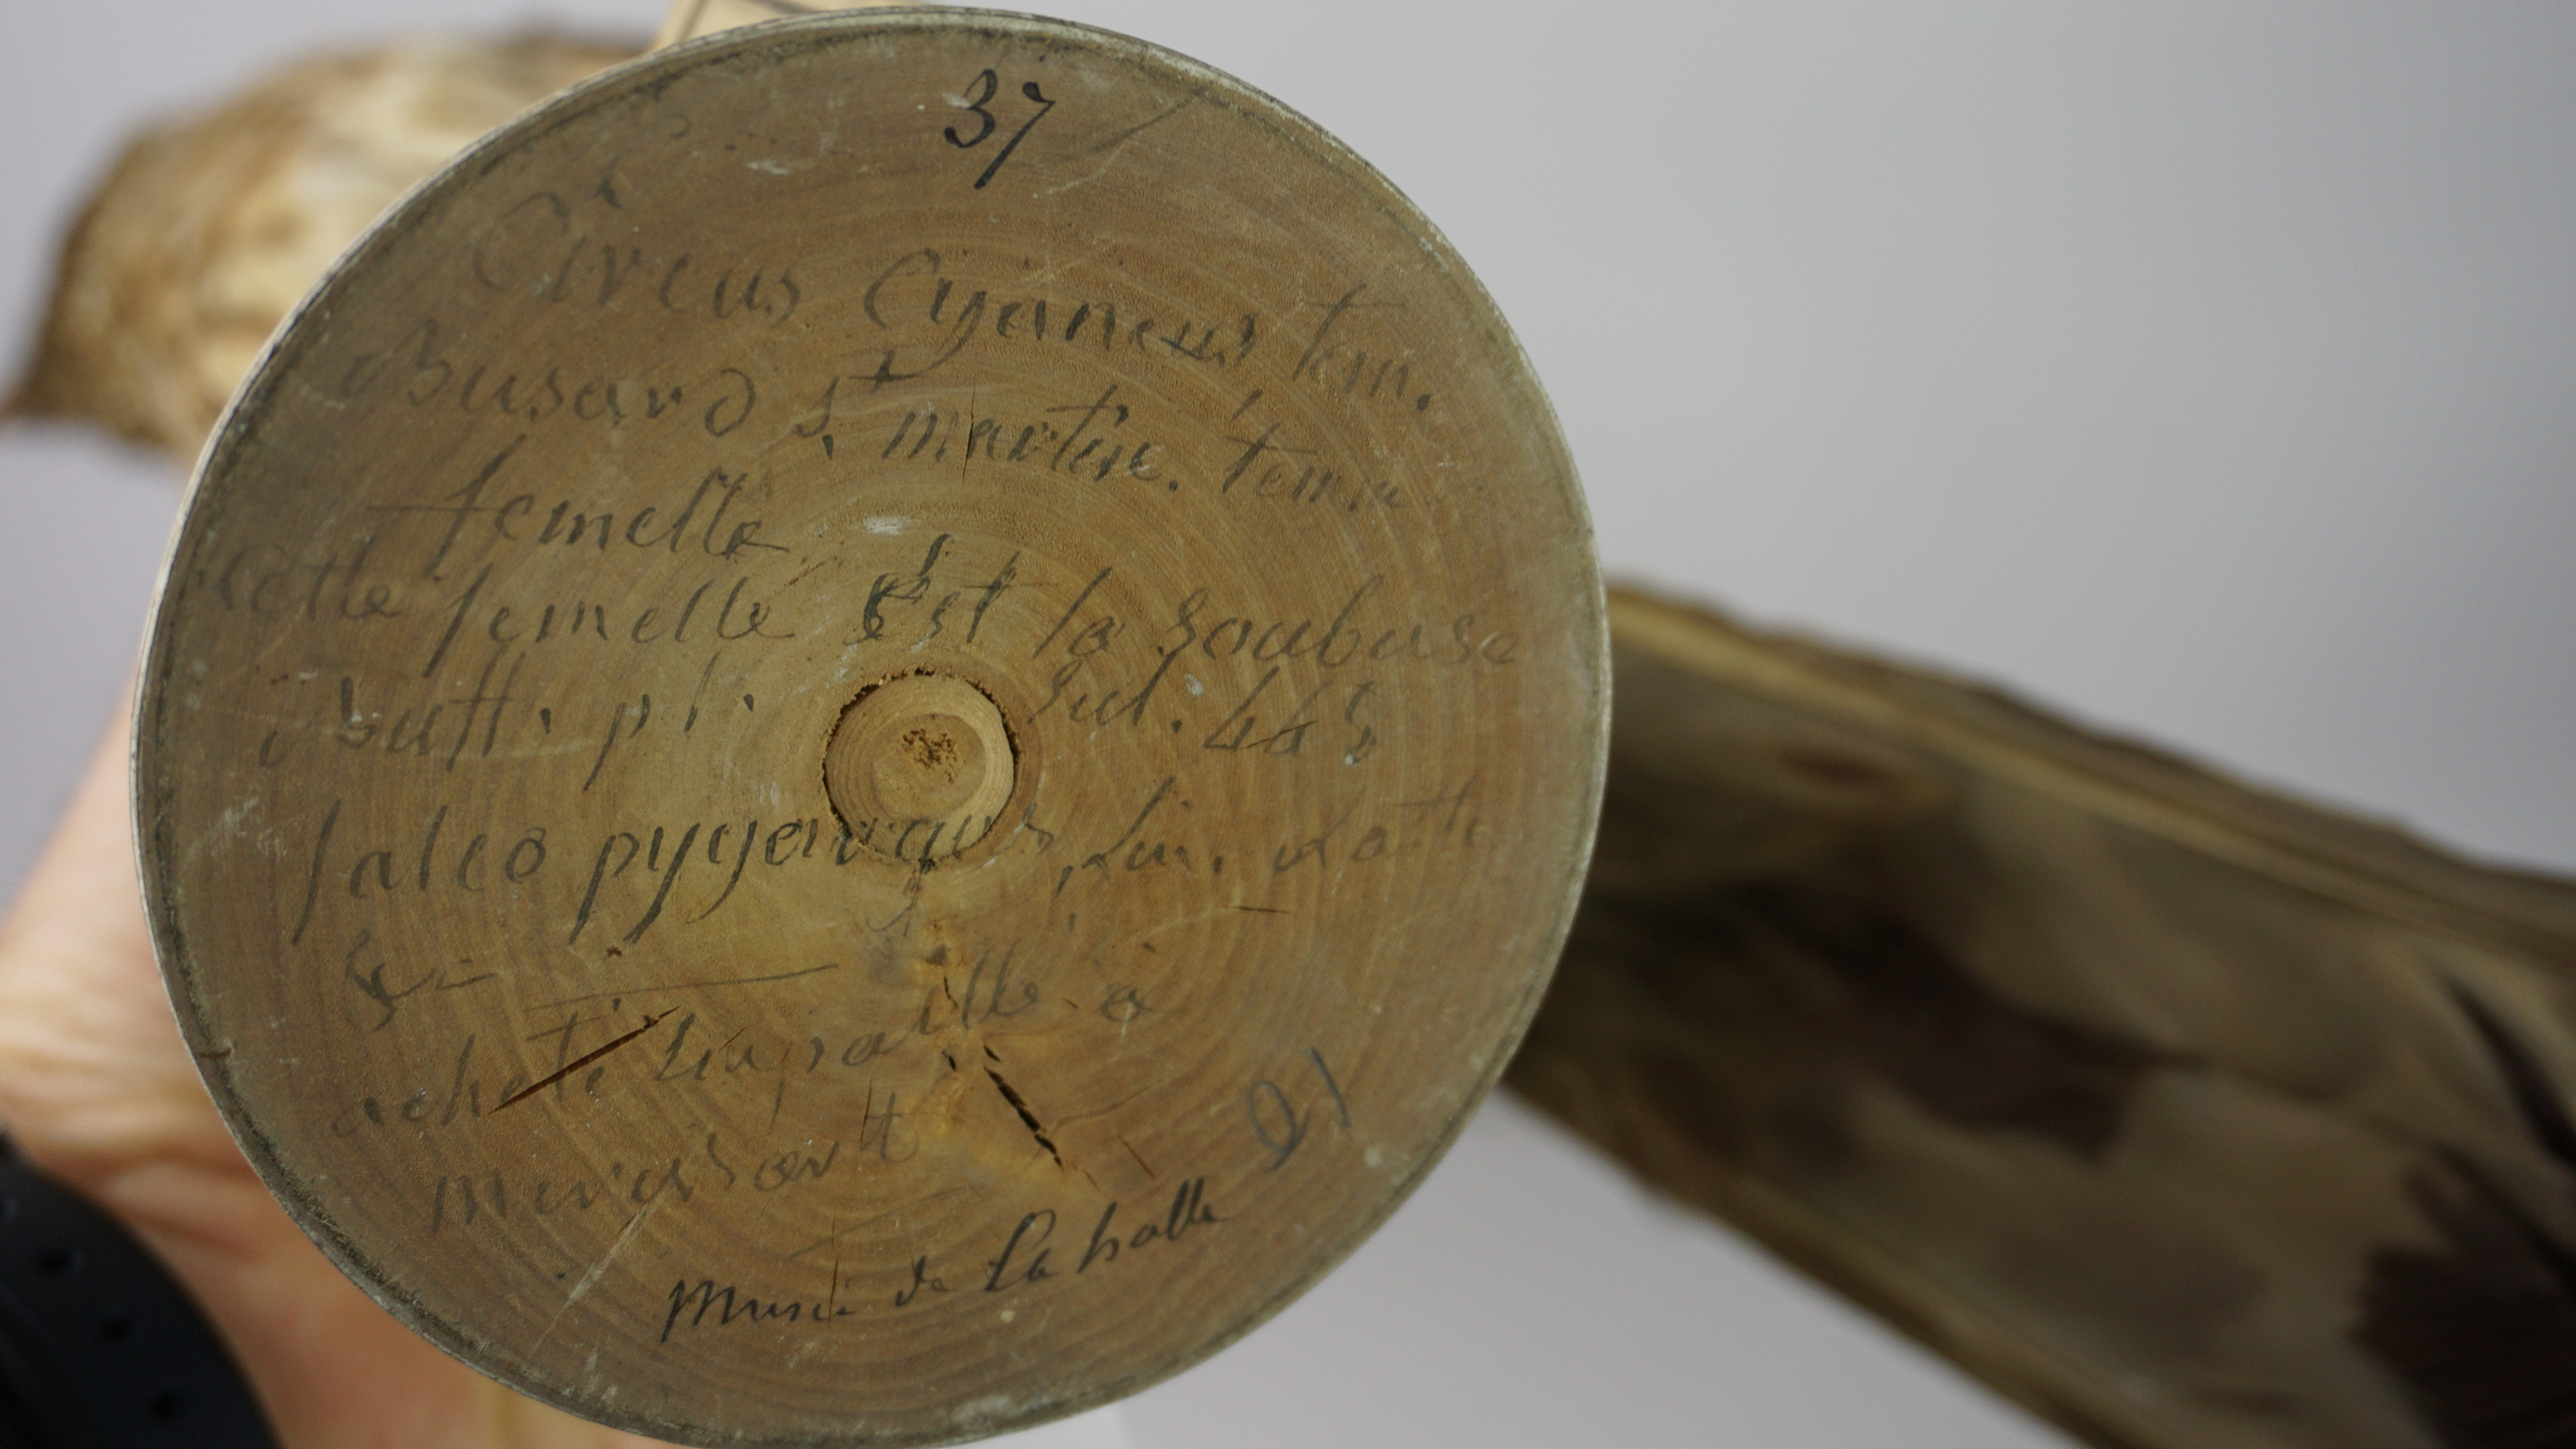 37
Circus Cyaneus tem.
Busard St martin. temm
femelle
Cette femelle est la soubuse
Buff. pl. Enl. 443
falco pygargus, Lin. Lath
&c
acheté Empaillé à
21
Musée de La halle